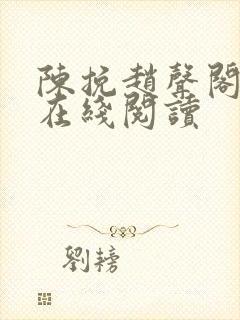 陳挽趙聲閣
在綫閱讀
劉鎊